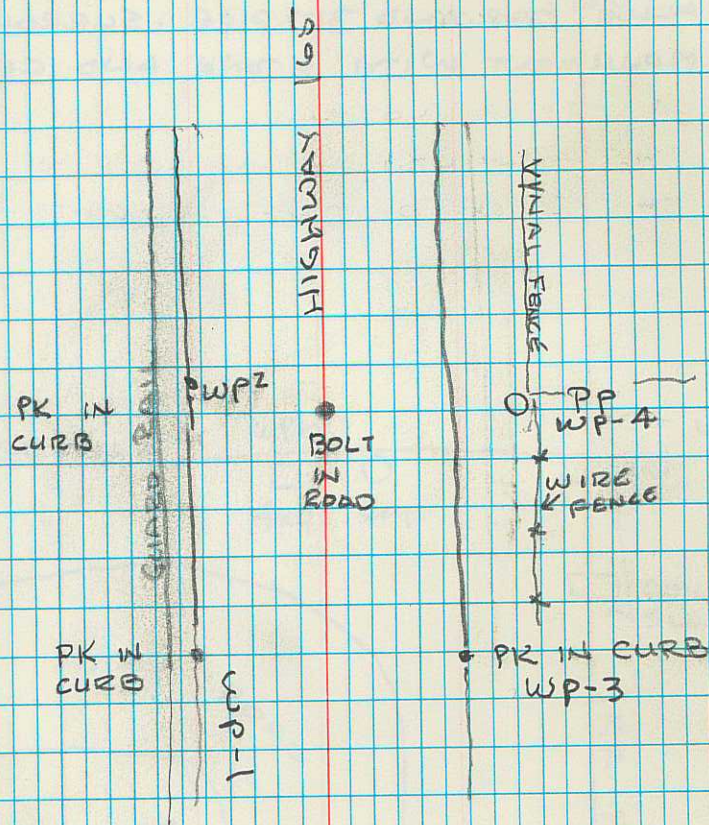 HIGHWAY 169
VYNAL FENCE
GUARD RAIL
PK IN
CURB
WP2
BOLT
IN
ROAD
PP
WP-4
WIRE
FENCE
PK IN
CURB
WP-1
PK IN CURB
WP-3